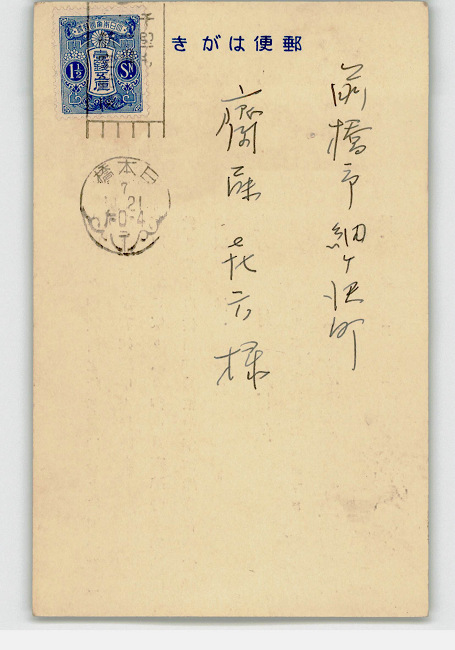 郵便はがき
前橋市細ヶ沢町
齋藤喜六様
大日本帝國郵便
壹錢五厘
1½ Sn
日本橋
7
21
0-4